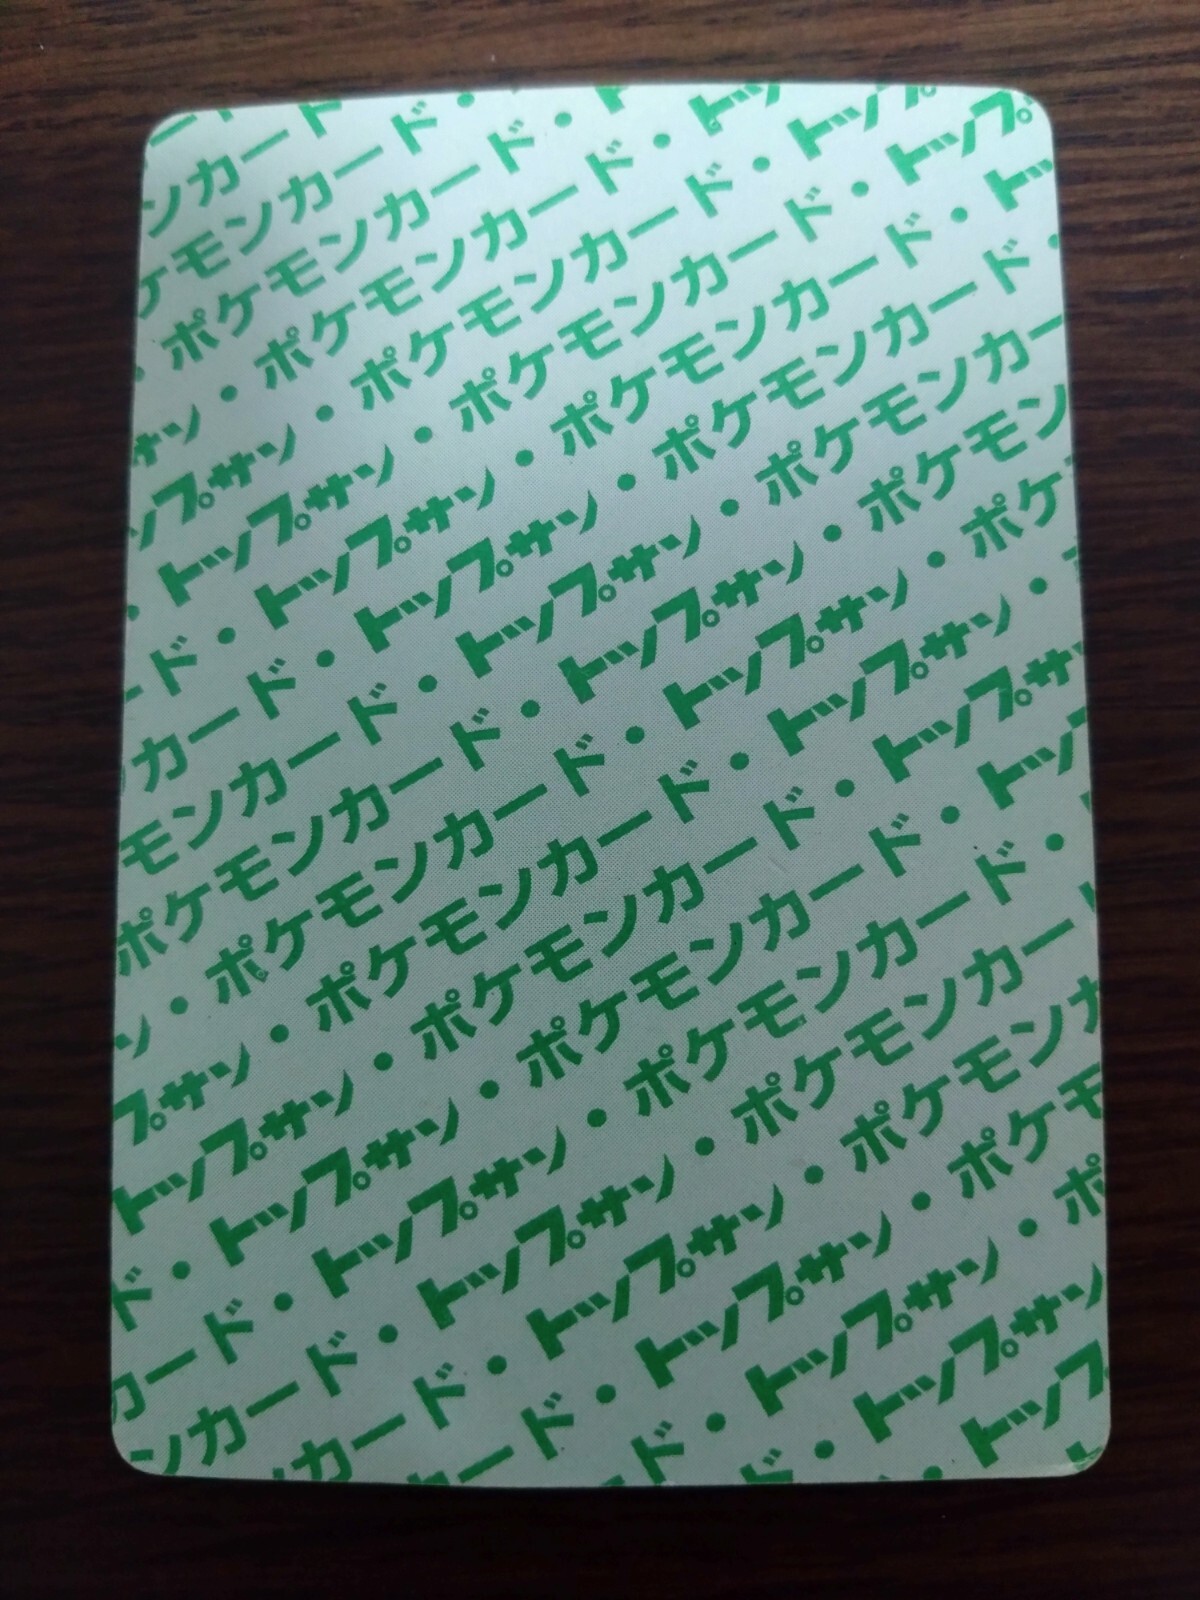 ンカード
ケモンカード・
・ポケモンカード・ト
サン・ポケモンカード・トッ
ップサン・ポケモンカード・トップ
・トップサン・ポケモンカード・トップ
ード・トップサン・ポケモンカード・トッ
カード・トップサン・ポケモンカード・
モンカード・トップサン・ポケモンカー
ポケモンカード・トップサン・ポケモン
ン・ポケモンカード・トップサン・ポケ
プサン・ポケモンカード・トップサン・
トップサン・ポケモンカード・トップサ
ド・トップサン・ポケモンカード・トップ
カード・トップサン・ポケモンカード・
ンカード・トップサン・ポケモンカー
カード・トップサン・ポケモンカ
ード・トップサン・ポケモ
ド・トップサン・ポ
ド・トップサ
トップ